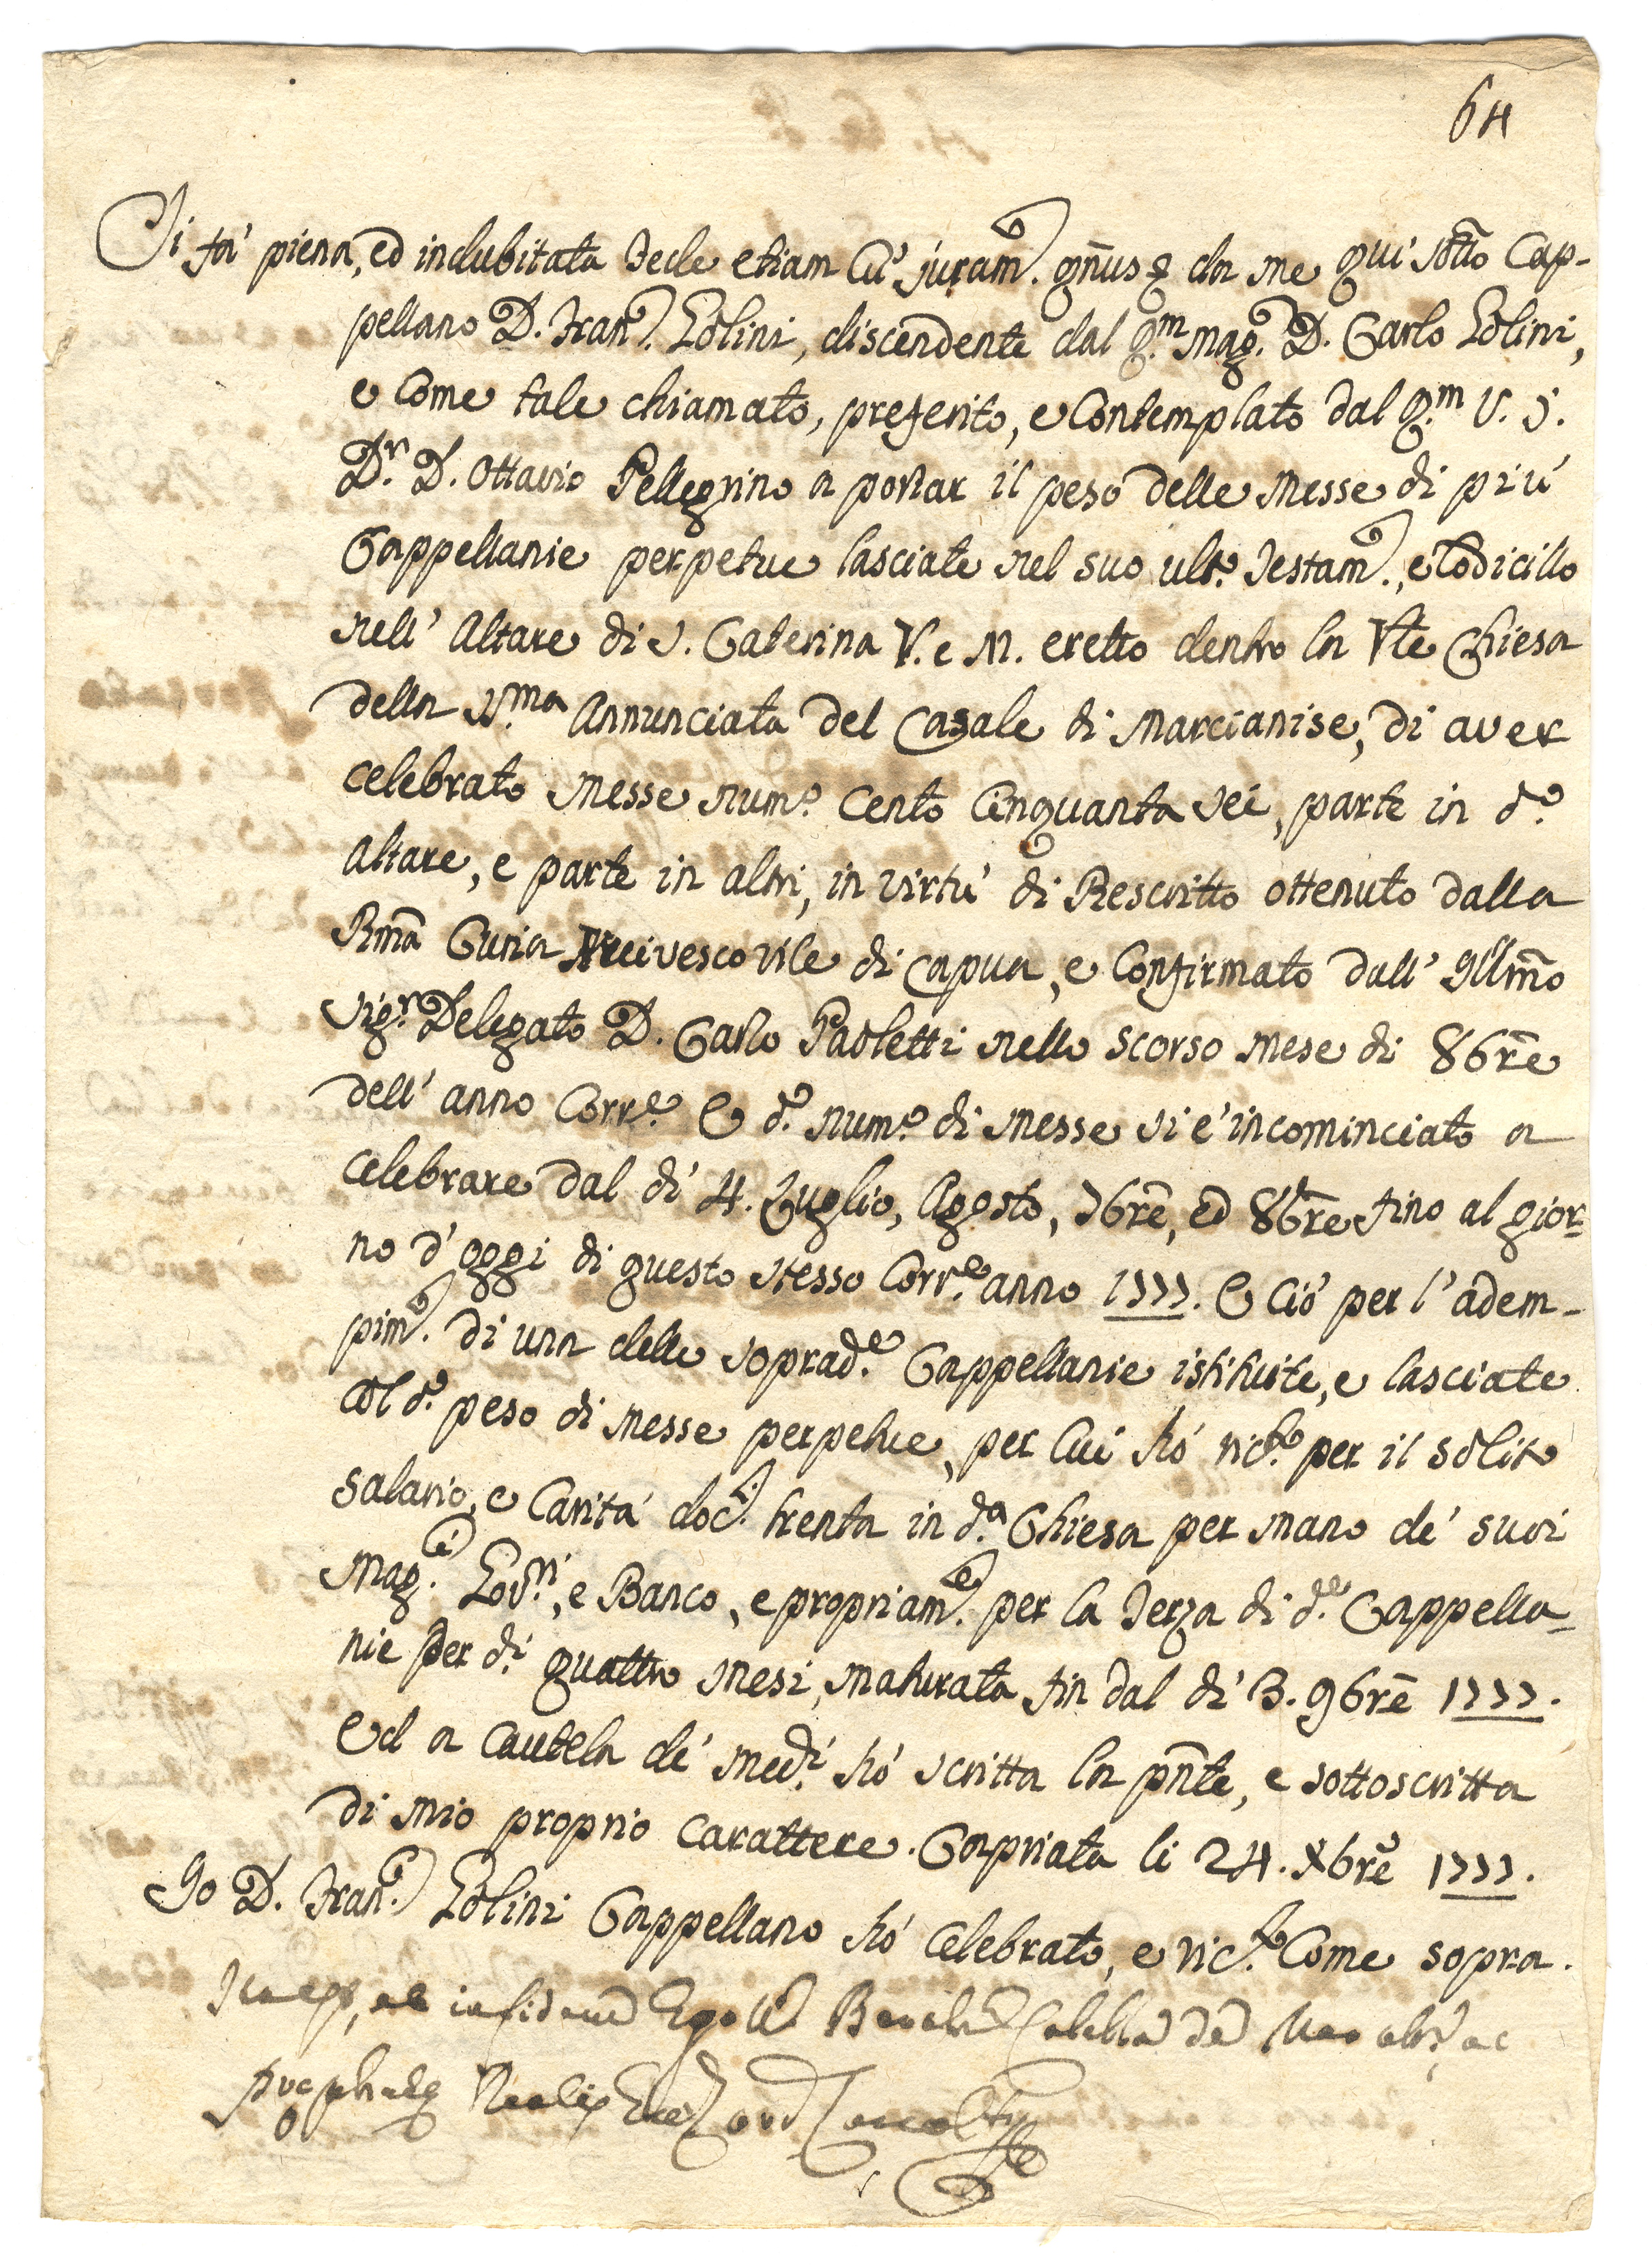 64
Si fà piena, ed indubitata Fede etiam cũ juram.º da me quì sõtto Cap-
pellano D. Fran.º Golini, discendente dal q.m Mag.º D. Carlo Golini,
e come tale chiamato, preferito, e contemplato dal q.m U. J.
D.r D. Ottavio Pellegrino a portar il peso delle Messe di più
Cappellanie perpetue lasciate nel suo ult.º Testam.º, e Codicillo
nell' Altare di S. Caterina V. e M. eretto dentro la Vle Chiesa
della SS.ma Annunciata del Casale di Marcianise, di aver
celebrato Messe num.º cento cinquanta sei, parte in d.º
Altare, e parte in altri, in virtù di Rescritto ottenuto dalla
Rmã Curia Arcivescovile di Capua, e confirmato dall' Illmõ
Sig.r Delegato D. Carlo Paoletti nello scorso mese di 8brẽ
dell' anno corr.e E d.º num.º di Messe si è incominciato a
celebrare dal dì 4. Luglio, Agosto, 7brẽ, ed 8brẽ fino al gior-
no d' oggi di questo stesso corr.e anno 1777. E ciò per l' adem-
pim.º di una delle soprad.e Cappellanie istituite, e lasciate
col d.º peso di Messe perpetue, per cui hò ric.to per il solito
salario, e carità doc.i trenta in d.a Chiesa per mano de' suoi
Mag.ci Gov.ri, e Banco, e propriam.e per la Terza di d.e Cappella-
nie per d.i quattro mesi, maturata fin dal dì 3. 9brẽ 1777.
Ed a cautela de' med.i hò scritta la pñte, e sottoscritta
di mio proprio carattere. Capriata li 24. Xbrẽ 1777.
Io D. Fran.co Golini Cappellano hò celebrato, e ric.to come sopra.